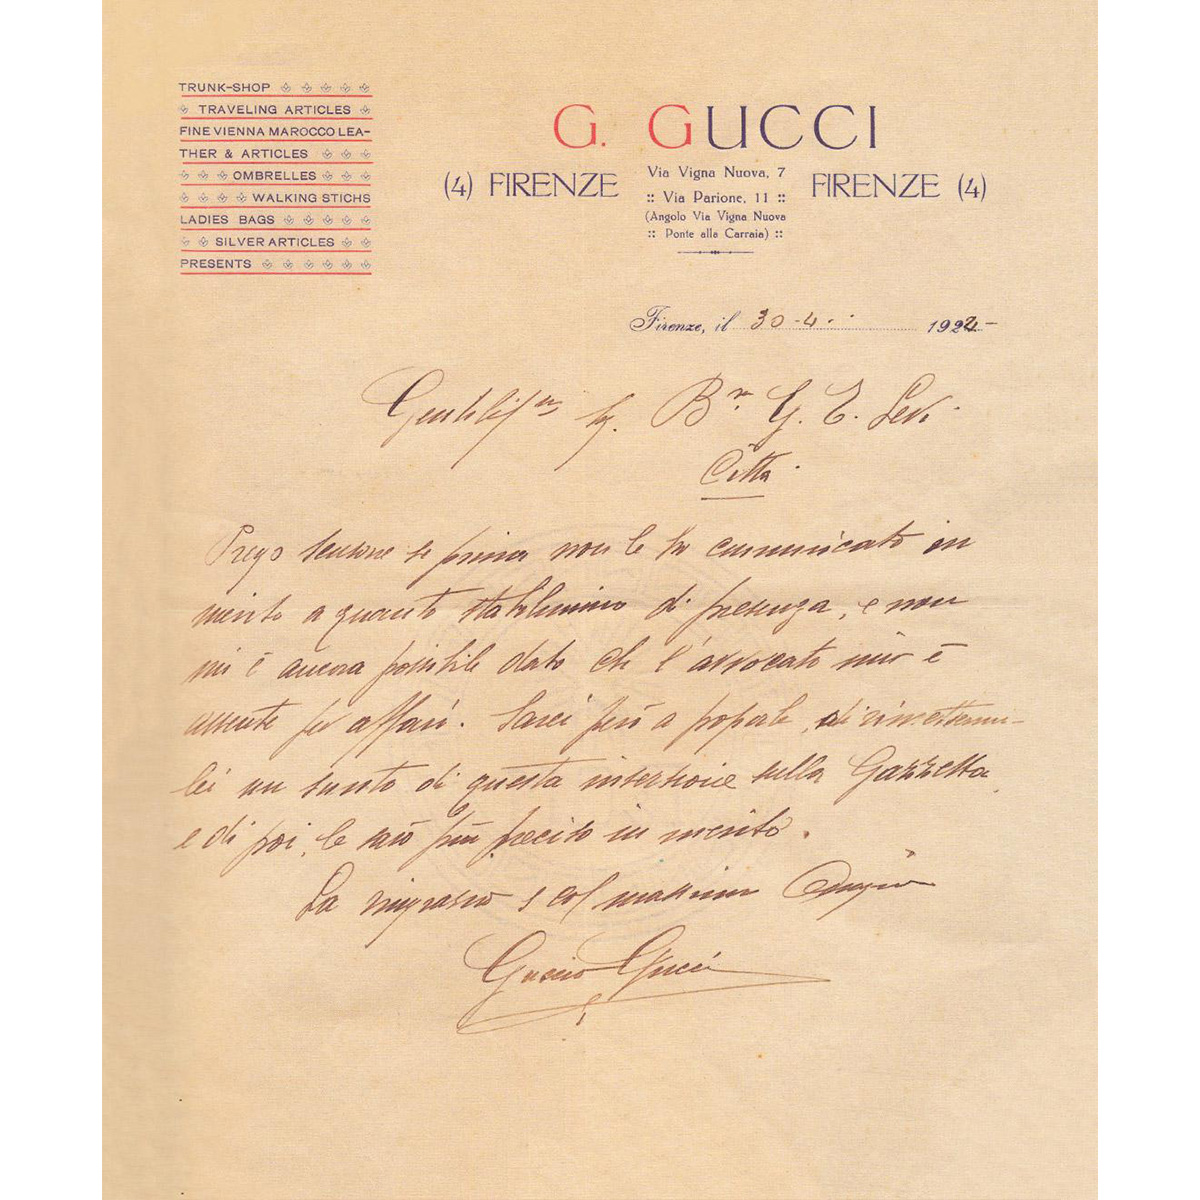 TRUNK-SHOP
TRAVELING ARTICLES
FINE VIENNA MAROCCO LEA-
THER & ARTICLES
OMBRELLES
WALKING STICHS
LADIES BAGS
SILVER ARTICLES
PRESENTS
G. GUCCI
(4) FIRENZE
Via Vigna Nuova, 7
:: Via Parione, 11 ::
(Angolo Via Vigna Nuova
:: Ponte alla Carraia) ::
FIRENZE (4)
Firenze, il 30-4 1922-
G. E. Levi.
Città.
Prego se prima non le ho comunicato in
merito a quanto di presenza, e non
mi è ancora possibile dato che l'avvocato mio è
assente per affari. Sarei però a pregarla, di rimetter
lei un sunto di questa inserzione sulla Gazzetta,
e di poi, le sarò più preciso in merito.
La ringrazio e col massimo
Guccio Gucci